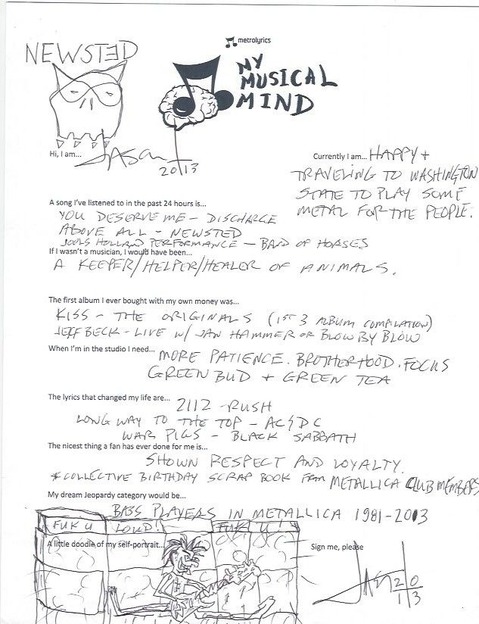 NEWSTED
metrolyrics
MY
MUSICAL
MIND
Hi, I am... JASON
2013
Currently I am... HAPPY +
TRAVELING TO WASHINGTON
STATE TO PLAY SOME
METAL FOR THE PEOPLE.
A song I've listened to in the past 24 hours is...
YOU DESERVE ME - DISCHARGE
ABOVE ALL - NEWSTED
JOOLS HOLLAND PERFORMANCE - BAND OF HORSES
If I wasn't a musician, I would have been...
A KEEPER/HELPER/HEALER OF ANIMALS.
The first album I ever bought with my own money was...
KISS - THE ORIGINALS (1ST 3 ALBUM COMPILATION)
JEFF BECK - LIVE W/ JAN HAMMER OR BLOW BY BLOW
When I'm in the studio I need... MORE PATIENCE. BROTHERHOOD. FOCUS
GREEN BUD + GREEN TEA
The lyrics that changed my life are... 2112 - RUSH
LONG WAY TO THE TOP - AC/DC
WAR PIGS - BLACK SABBATH
The nicest thing a fan has ever done for me is...
SHOWN RESPECT AND LOYALTY.
+ COLLECTIVE BIRTHDAY SCRAP BOOK FROM METALLICA CLUB MEMBERS
My dream Jeopardy category would be...
BASS PLAYERS IN METALLICA 1981-2013
FUK U LOUD! FUK U
A little doodle of my self-portrait...
Sign me, please
JASON 2013